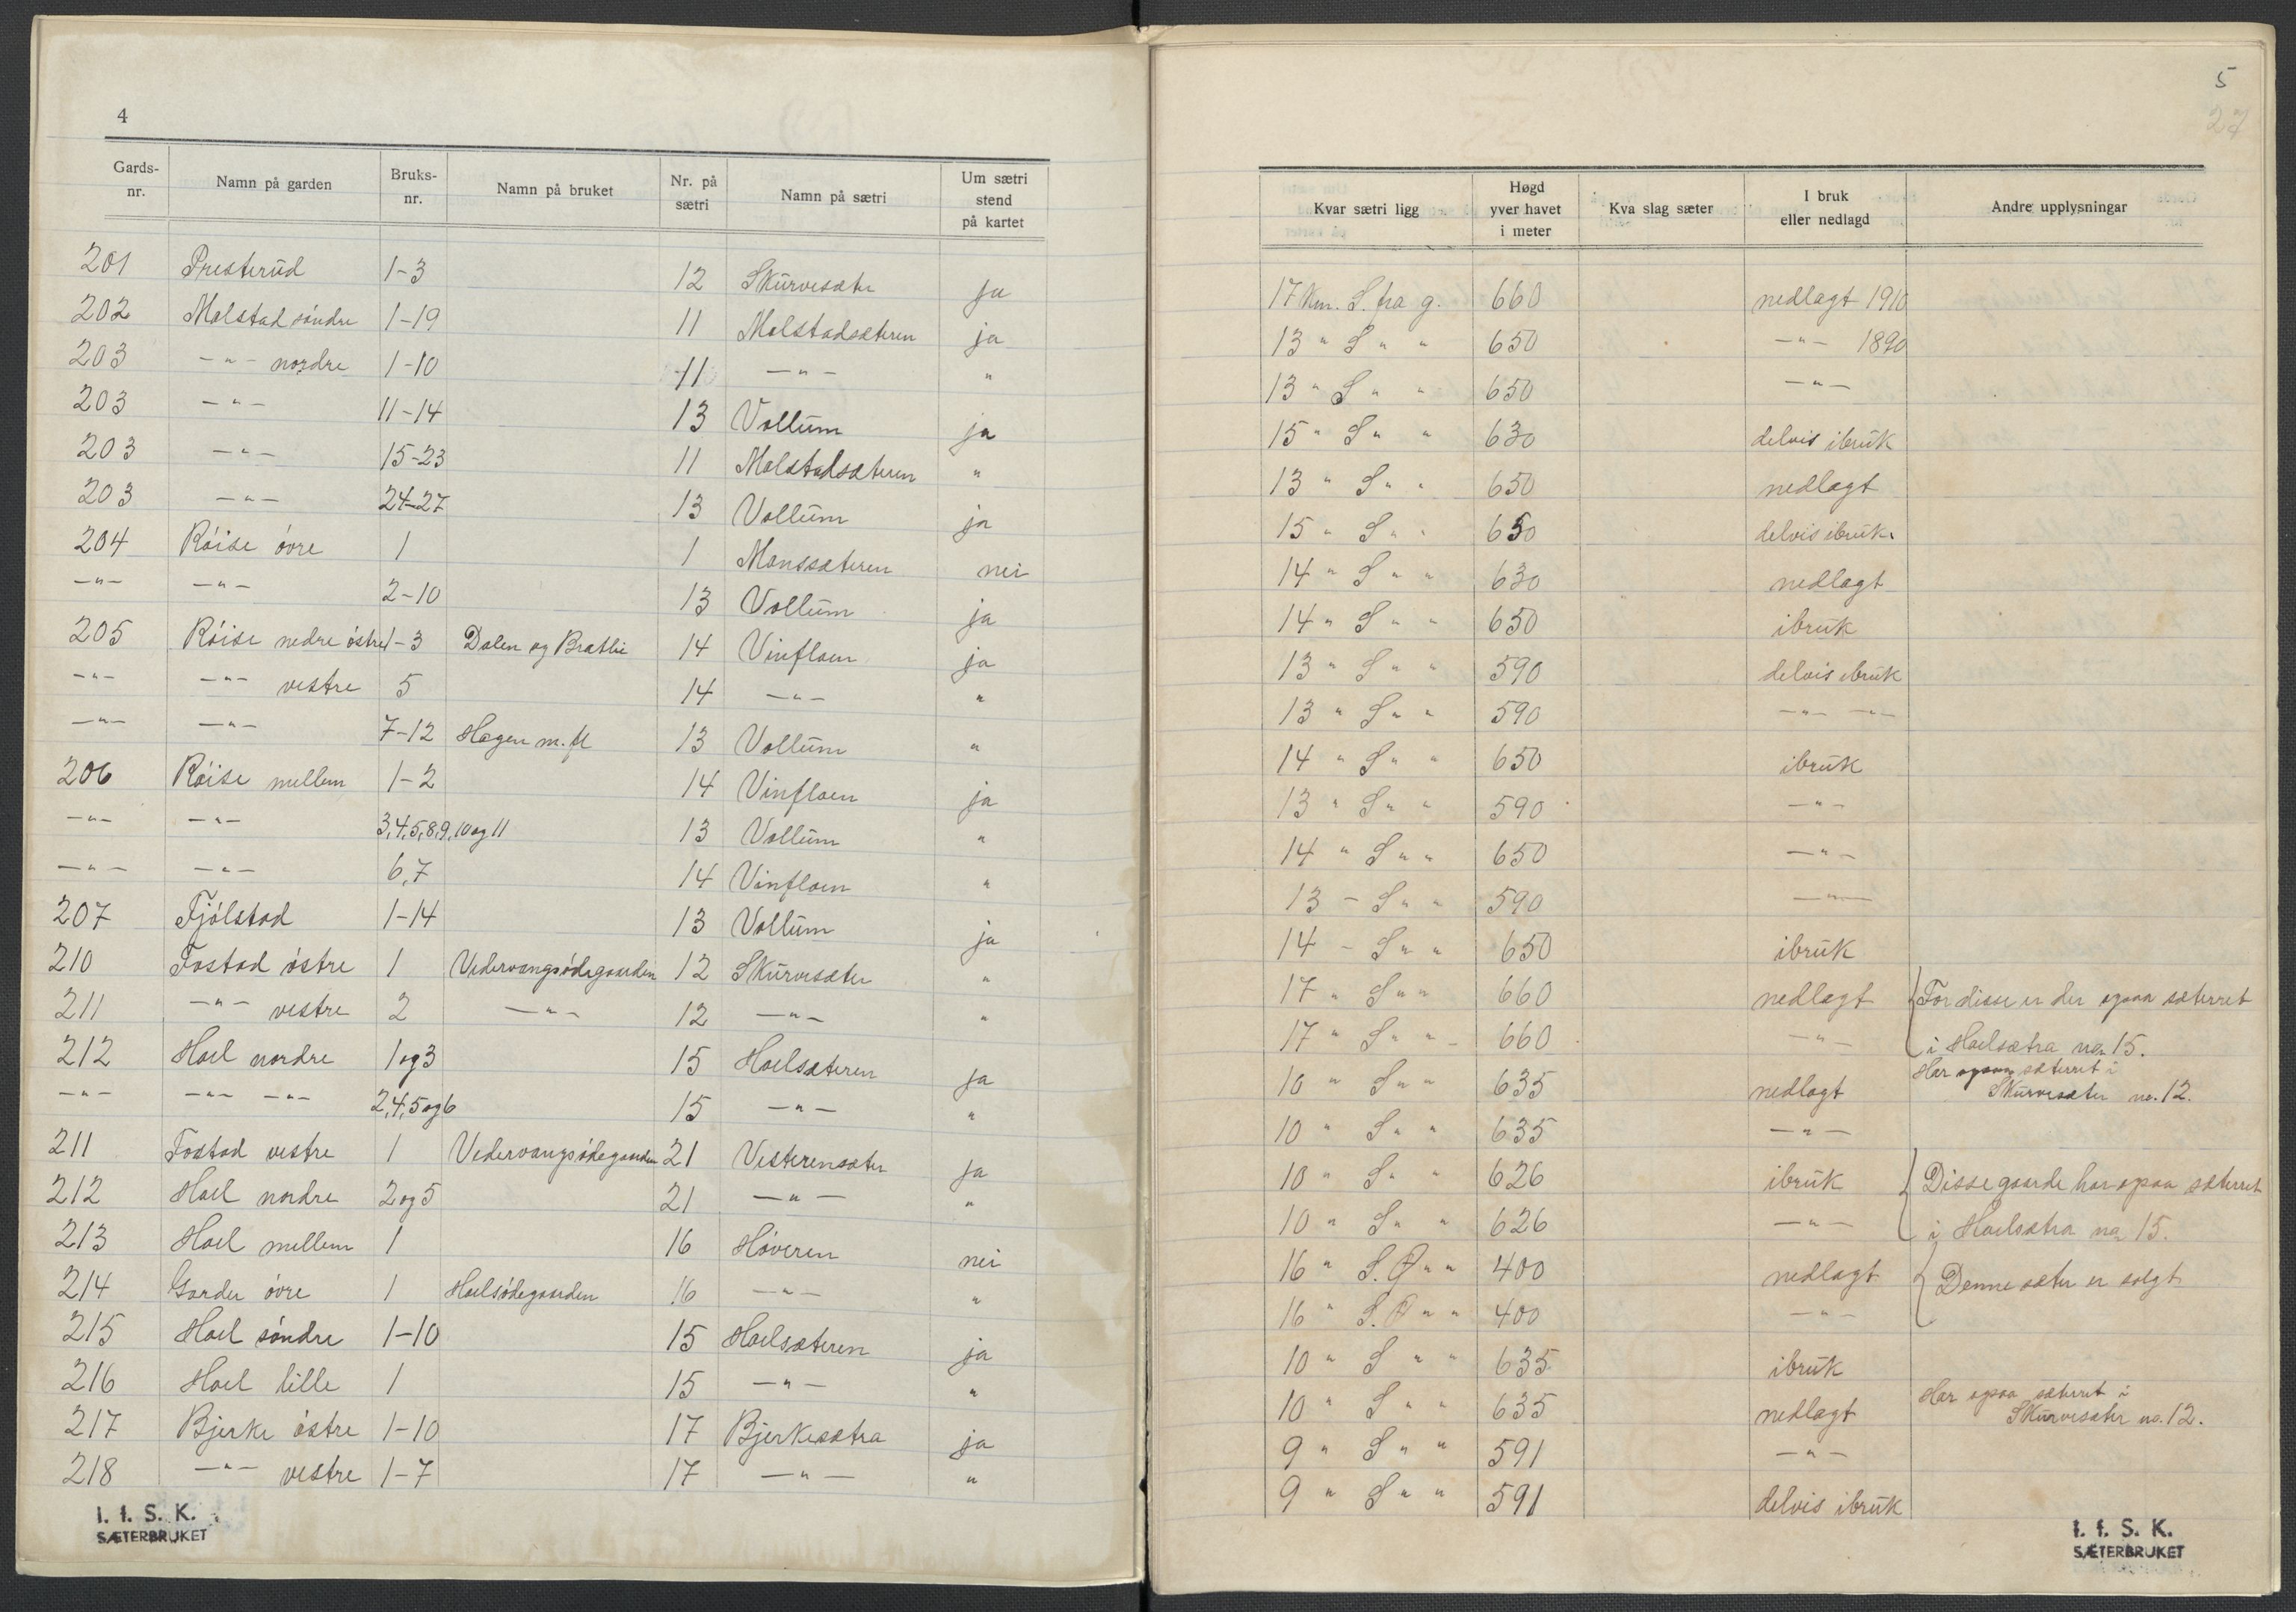 4
Gards-nr. Namn på garden Bruks-nr. Namn på bruket Nr. på sætri Namn på sætri Um sætri stend på kartet
201 Presterud 1-3 12 Skurvesæter ja
202 Malstad söndre 1-19 11 Malstadsæteren ja
203 -"- nordre 1-10 11 -"- "
203 -"- 11-14 13 Vollum ja
203 -"- 15-23 11 Malstadsæteren "
203 -"- 24-27 13 Vollum ja
204 Röise övre 1 1 Monssæteren nei
-"- -"- 2-10 13 Vollum ja
205 Röise nedre östre 1-3 Dalen og Bratlie 14 Vinfloen ja
-"- -"- vestre 5 14 -"- "
-"- -"- 7-12 Hagen m.fl 13 Vollum "
206 Röise mellem 1-2 14 Vinfloen ja
-"- -"- 3,4,5,8,9,10 og 11 13 Vollum "
-"- -"- 6,7 14 Vinfloen "
207 Fjölstad 1-14 13 Vollum ja
210 Fostad östre 1 Vedervangsödegaarden 12 Skurvesæter "
211 -"- vestre 2 -"- 12 -"- "
212 Hoel nordre 1 og 3 15 Hoelsæteren ja
-"- -"- -"- 2,4,5 og 6 15 -"- "
211 Fostad vestre 1 Vedervangsödegaarden 21 Vesterensæter ja
212 Hoel nordre 2 og 5 21 -"- "
213 Hoel mellem 1 16 Höveren nei
214 Garder övre 1 Hoelsödegaarden 16 -"- "
215 Hoel söndre 1-10 15 Hoelsæteren ja
216 Hoel lille 1 15 -"- "
217 Bjerke östre 1-10 17 Bjerkesætra ja
218 -"- vestre 1-7 17 -"- "
I. f. S. K.
SÆTERBRUKET
5
27
Kvar sætri ligg Høgd yver havet i meter Kva slag sæter I bruk eller nedlagd Andre upplysningar
17 Km. S. fra g. 660 nedlagt 1910
13 " S " " 650 -"- 1890
13 " S " " 650 -"-
15 " S " " 630 delvis ibruk
13 " S " " 650 nedlagt
15 " S " " 650 delvis ibruk
14 " S " " 630 nedlagt
14 " S " " 650 ibruk
13 " S " " 590 delvis ibruk
13 " S " " 590 -"- -"-
14 " S " " 650 ibruk
13 " S " " 590 -"-
14 " S " " 650 -"-
13 - S " " 590 -"-
14 - S " " 650 ibruk
17 " S " " 660 nedlagt For disse er der ogsaa sæterret
17 " S " " 660 -"- i Hoelsætra no 15.
10 " S " " 635 nedlagt Har ogsaa sæterret i Skurvesæter no. 12.
10 " S " " 635 -"-
10 " S " " 626 ibruk Disse gaarde har ogsaa sæterret
10 " S " " 626 -"- i Hoelsætra no 15.
16 " S. Ø " " 400 nedlagt Denne sæter er solgt
16 " S. Ø " " 400 -"-
10 " S " " 635 ibruk
10 " S " " 635 nedlagt Har ogsaa sæterret i Skurvesæter no. 12.
9 " S " " 591 -"-
9 " S " " 591 delvis ibruk
I. f. S. K.
SÆTERBRUKET